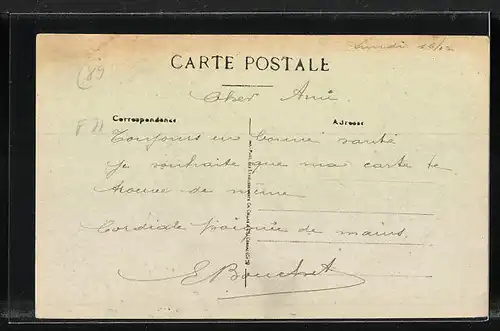 Lundi
CARTE POSTALE
(89
Cher Ami
F 71
Correspondance
Adresse
Toujours en bonne santé
je souhaite que ma carte te
trouve de même
Cordiale poignée de mains.
E Bouchet